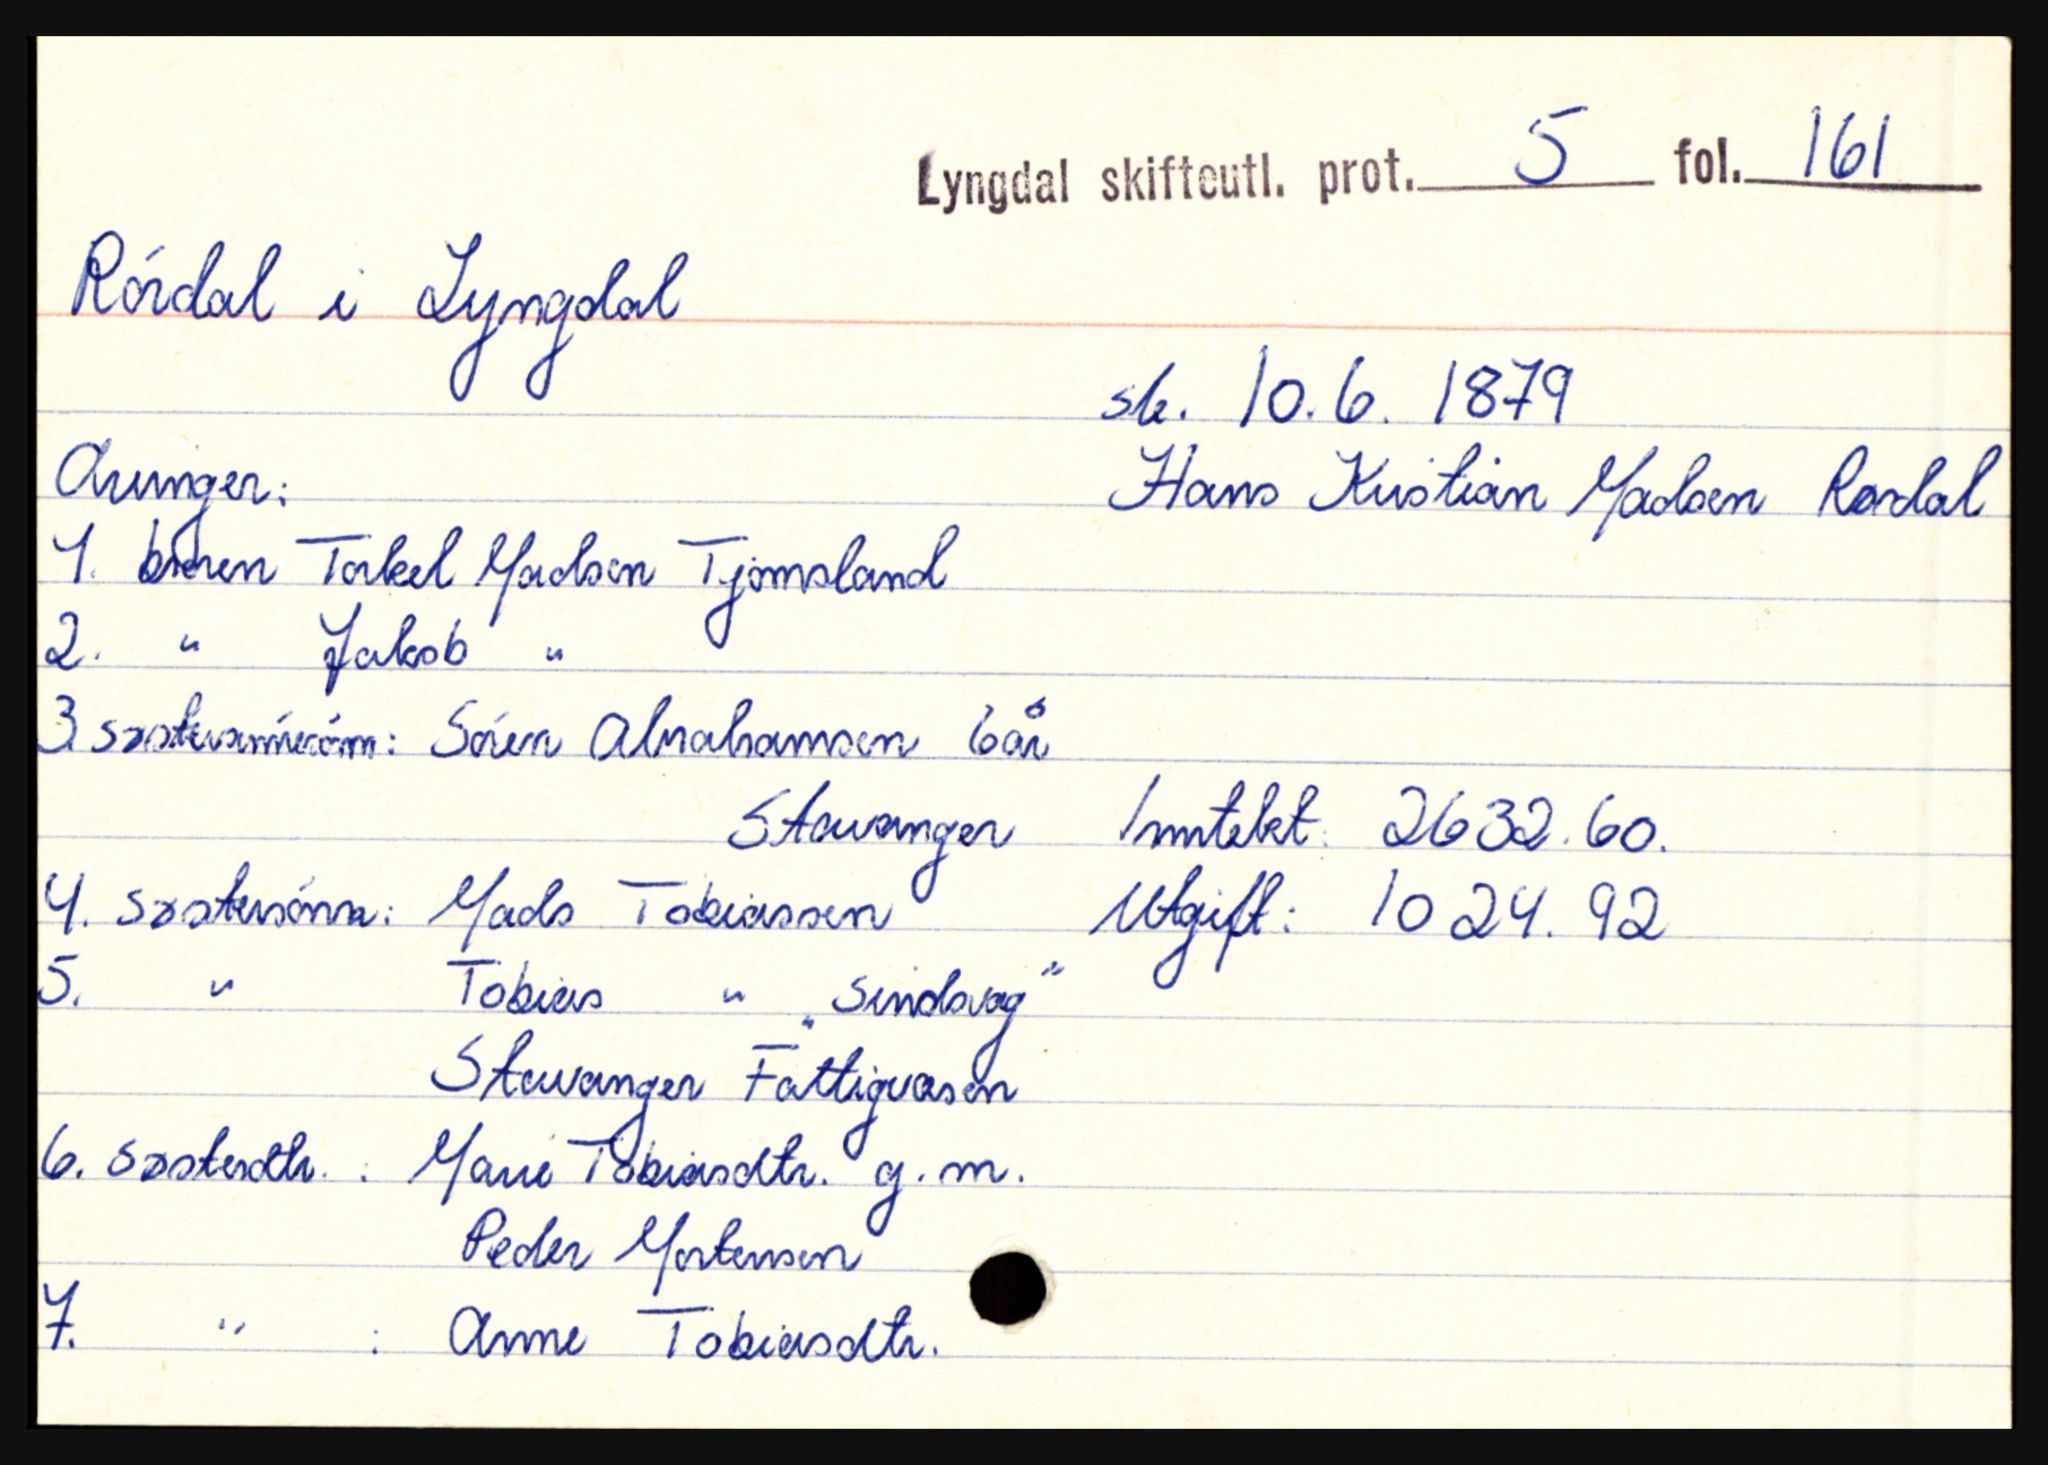 Lyngdal skifteutl. prot. 5 fol. 161
Rórdal i Lyngdal
sk. 10.6. 1879
Arvinger: Hans Kristian Madsen Rørdal
1. broren Torkel Madsen Tjómsland
2. " Jakob "
3 søstersønnesónn: Sóren Abrahamsen 6 år
Stavanger Inntekt: 2632.60.
4. søstersónn: Mads Tobiassen Utgift: 1024.92
5. " Tobias " "Sindsvag"
Stavanger Fattigvesen
6. søsterdtr. : Marie Tobiasdtr. g.m.
Peder Mortensen
7. " : Anne Tobiasdtr.